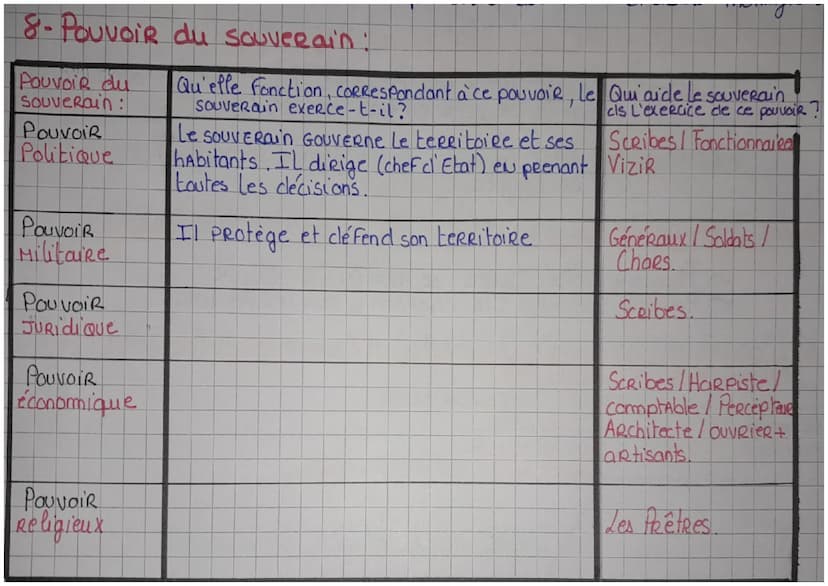 8- Pouvoir du souverain :
Pouvoir du
souverain :
Qu'elle fonction, correspondant à ce pouvoir, le
souverain exerce-t-il ?
Qui aide le souverain
ds l'exercice de ce pouvoir ?
Pouvoir
Politique
Le souverain gouverne le territoire et ses
habitants. Il dirige (chef d'Etat) en prenant
toutes les décisions.
Scribes / Fonctionnaires
Vizir
Pouvoir
Militaire
Il protège et défend son territoire
Généraux / Soldats /
Chars.
Pouvoir
Juridique
Scribes.
Pouvoir
économique
Scribes / Harpiste /
comptable / Percepteur
Architecte / ouvrier +
artisants.
Pouvoir
Religieux
Les Prêtres.